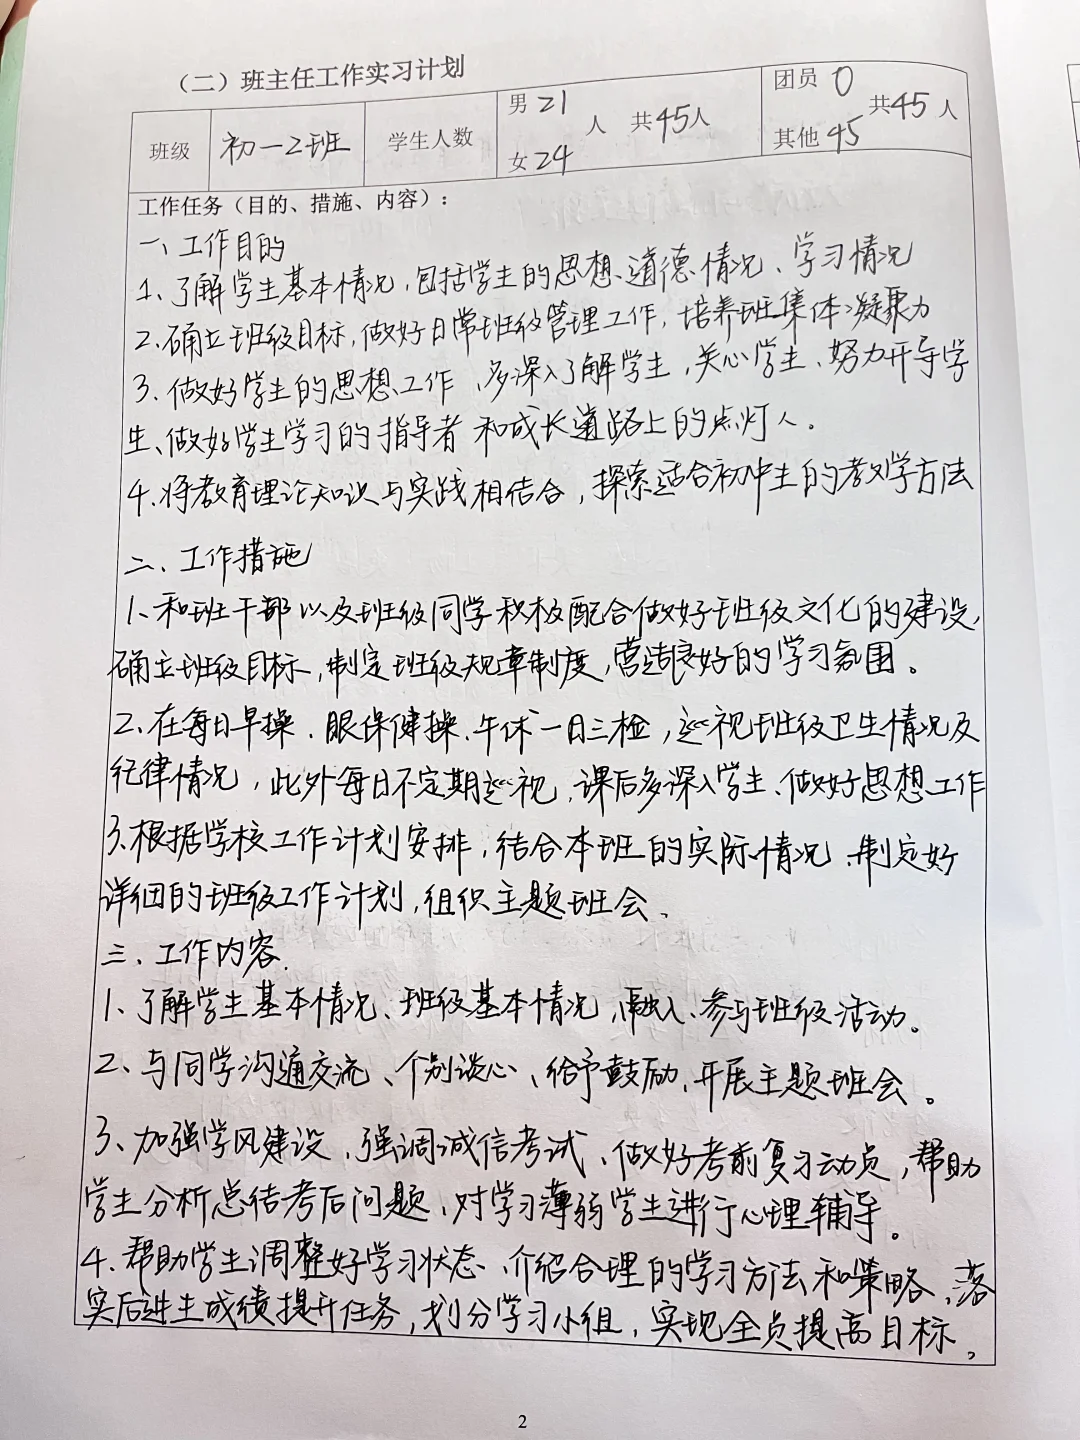 （二）班主任工作实习计划
班级 初一2班 学生人数 男21 人 共45人 女24 团员 0 共45人 其他 45
工作任务（目的、措施、内容）：
一、工作目的
1、了解学生基本情况，包括学生的思想、道德情况、学习情况
2、确立班级目标，做好日常班级管理工作，培养班集体凝聚力
3、做好学生的思想工作，多深入了解学生，关心学生、努力开导学
生、做好学生学习的指导者和成长道路上的点灯人。
4、将教育理论知识与实践相结合，探索适合初中生的教学方法
二、工作措施
1、和班干部以及班级同学积极配合做好班级文化的建设，
确立班级目标，制定班级规章制度，营造良好的学习氛围。
2、在每日早操、眼保健操、午休一日三检，巡视班级卫生情况及
纪律情况，此外每日不定期巡视，课后多深入学生、做好思想工作
3、根据学校工作计划安排，结合本班的实际情况，制定好
详细的班级工作计划，组织主题班会、
三、工作内容
1、了解学生基本情况、班级基本情况，融入、参与班级活动。
2、与同学沟通交流、个别谈心、给予鼓励，开展主题班会。
3、加强学风建设，强调诚信考试、做好考前复习动员，帮助
学生分析总结考后问题，对学习薄弱学生进行心理辅导。
4、帮助学生调整好学习状态、介绍合理的学习方法和策略、落
实后进生成绩提升任务，划分学习小组，实现全员提高目标。
2